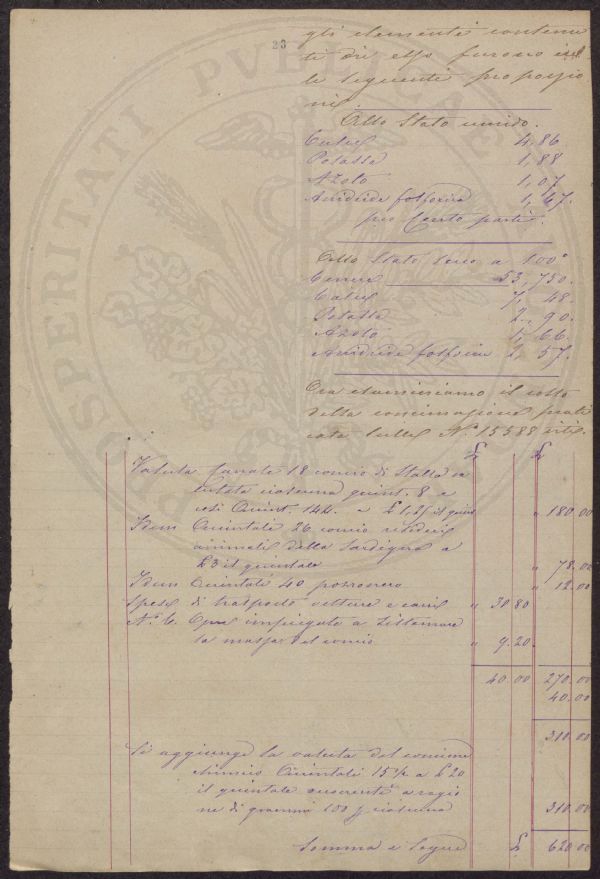 23
gli elementi contenu
ti di esso furono in
le seguenti proporzio
ni.
Allo Stato umido.
Calce 4,86
Potassa 1,88
Azoto 1,07
Anidride fosforica 1,67.
per Cento parti.
Allo Stato secco a 100°
Cenere 53,750.
Calce 7, 48.
Potassa 2, 90.
Azoto 1, 66.
Anidride fosforica 2, 57.
Ora esaminiamo il costo
della concimazione prati
cata sulle N.° 15588 viti.
£ £
Valuta 18 concio di Stalla va
lutata ciascuna quint. 8 e
così Quint. 144. a £ 1,25 il quint " 180.00
Idem Quintali 26 concio residui
animali della Sardigna a
£3 il quintale " 78.00
Idem Quintali 40 pozzonero " 12.00
Spese di trasporto vetture e carri " 30.80
N.° 6. Opre impiegate a sistemare
la massa del concio " 9.20
40.00 270.00
40.00
310.00
Si aggiunge la valuta del concime
chimico Quintali 15½ a £ 20
il quintale a ragio
ne di grammi 100 p ciascuna 310.00
Somma e Segue £ 620.00
PROSPERITATI PVBLICAE